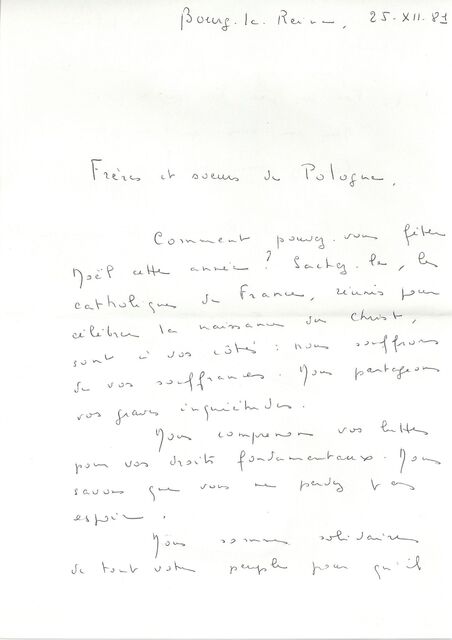 Bourg-la-Reine, 25.XII.81
Frères et soeurs de Pologne,
Comment pouvez-vous fêter
Noël cette année ? Sachez-le, les
catholiques de France, réunis pour
célébrer la naissance du Christ,
sont à vos côtés : nous souffrons
de vos souffrances. Nous partageons
vos graves inquiétudes.
Nous comprenons vos luttes
pour vos droits fondamentaux. Nous
savons que vous ne perdez pas
espoir.
Nous sommes solidaires
de tout votre peuple pour qu'il